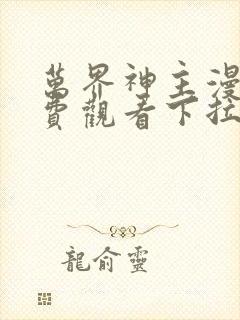 萬界神主漫
費觀看下拉
龍俞靈